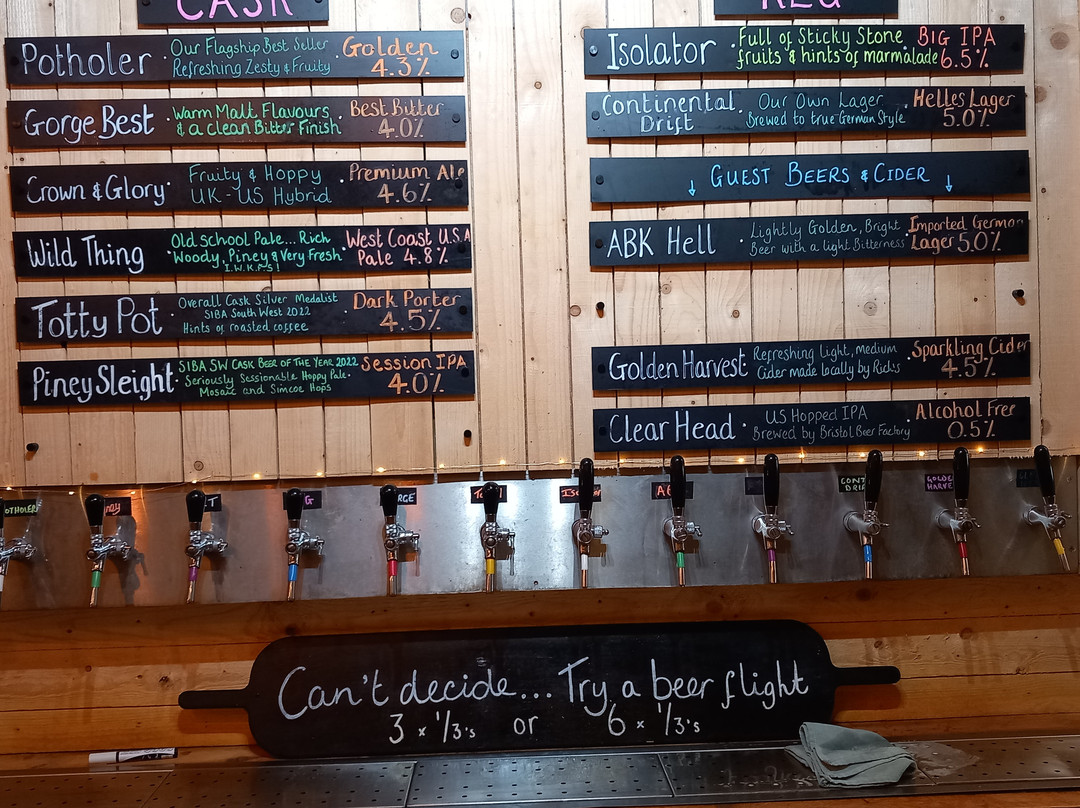 CASK
Potholer · Our Flagship Best Seller Golden
Refreshing Zesty & Fruity 4.3%
Gorge Best · Warm Malt Flavours Best Bitter
& a clean Bitter Finish 4.0%
Crown & Glory · Fruity & Hoppy · Premium Ale
UK-US Hybrid 4.6%
Wild Thing · Old School Pale... Rich · West Coast U.S.A
Woody, Piney & Very Fresh Pale 4.8%
Totty Pot · Overall Cask Silver Medalist Dark Porter
SIBA South West 2022 4.5%
Hints of roasted coffee
Piney Sleight · SIBA SW CASK BEER OF THE YEAR 2022 Session IPA
Seriously Sessionable Hoppy Pale · 4.0%
Mosaic and Simcoe Hops
KEG
Isolator · Full of Sticky Stone BIG IPA
fruits & hints of marmalade 6.5%
Continental Drift · Our Own Lager Helles Lager
Brewed to true German Style 5.0%
↓ GUEST BEERS & CIDER ↓
ABK Hell · Lightly Golden, Bright Imported German
Beer with a light Bitterness Lager 5.0%
Golden Harvest · Refreshing light, medium · Sparkling Cider
Cider made locally by Rich's 4.5%
Clear Head · US Hopped IPA · Alcohol Free
Brewed by Bristol Beer Factory 0.5%
Can't decide... Try a beer flight
3 x 1/3's or 6 x 1/3's